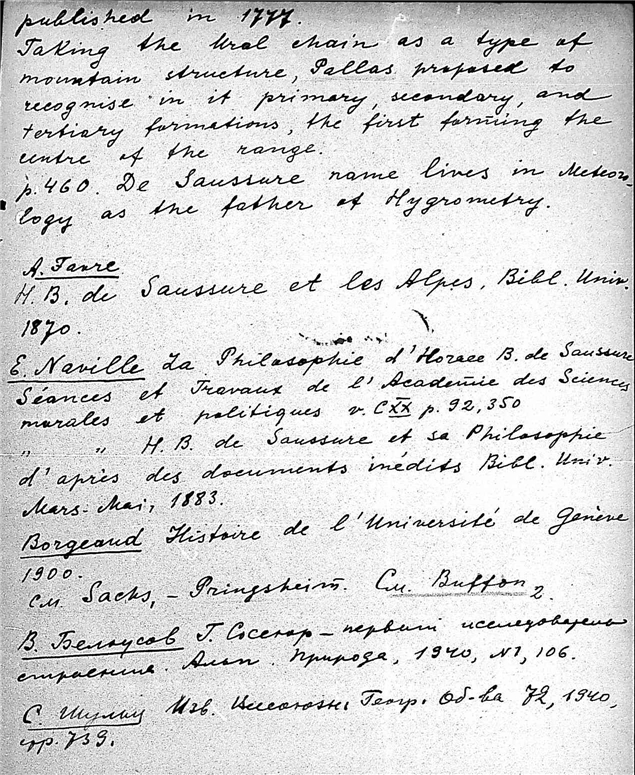 published in 1777.
Taking the Ural chain as a type of
mountain structure, Pallas proposed to
recognise in it primary, secondary, and
tertiary formations, the first forming the
centre of the range.
p. 460. De Saussure name lives in Meteoro-
logy as the father of Hygrometry.
A. Favre
H. B. de Saussure et les Alpes. Bibl. Univ.
1870.
E. Naville La Philosophie d'Horace B. de Saussure
Séances et Travaux de l'Académie des Sciences
morales et politiques v. CXX p. 92, 350
" " H. B. de Saussure et sa Philosophie
d'après des documents inédits Bibl. Univ.
Mars-Mai, 1883.
Borgeaud Histoire de l'Université de Genève
1900.
См. Sachs, - Pringsheim. См. Buffon 2.
В. Белоусов Г. Соссюр - первый исследователь
строения Альп. Природа, 1940, №1, 106.
С. Шульц Изв. Всесоюзн. Геогр. Об-ва 72, 1940,
стр. 739.